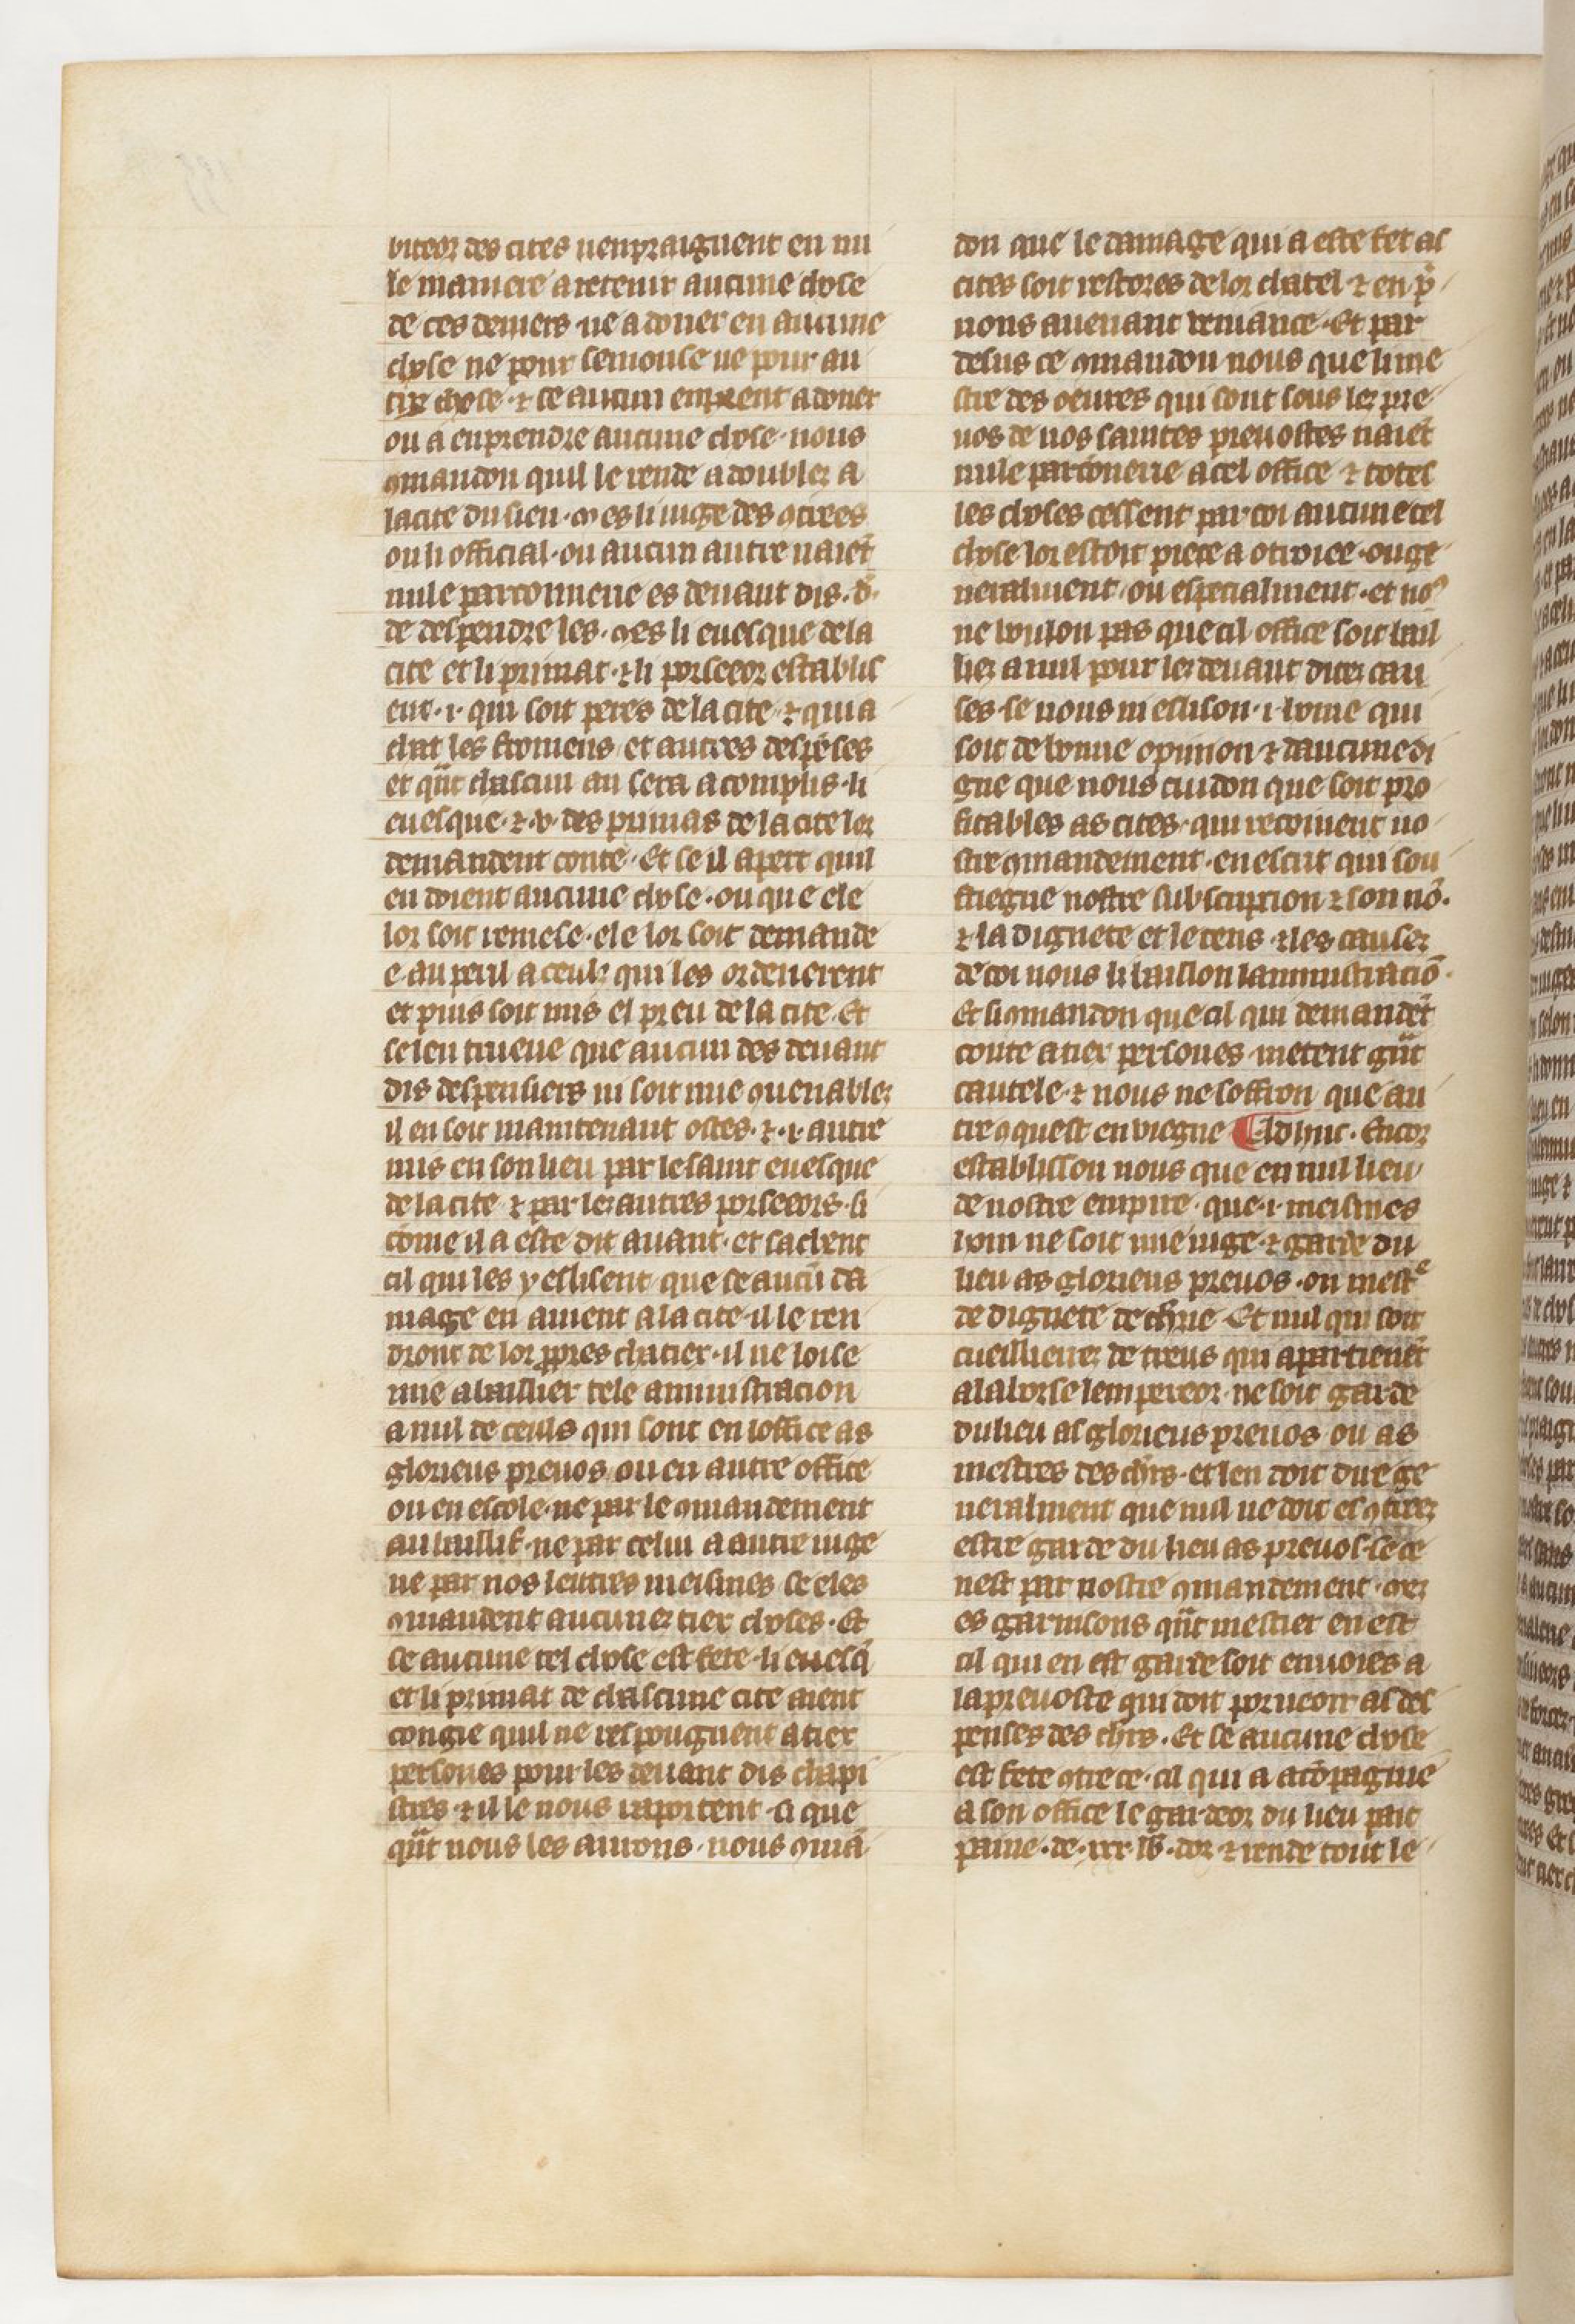 biteor des cites nenpraignent en nu
le maniere a retenir aucune chose
de ces deniers ne a doner en aucune
chose ne pour semonse ne pour au
tre chose · ⁊ se aucun emprent a doner
ou a enprendre aucune chose · nous
ꝯmandon quil le rende a doubler a
la cite du lieu · mes li iuge des ꝯtrees
ou li official · ou aucun autre naiẽt
nule parconnerie es deuant dis · d̃ ·
de despendre les · mes li euesque de la
cite et li primat · ⁊ li porseeor establis
ent · i · qui soit peres de la cite · ⁊ qui a
chat les fromens et autres despẽses
et qñt chascun an sera acomplis · li
euesque · ⁊ · v · des primas de la cite lor
demandent conte · Et se il apert quil
en doient aucune chose · ou que ele
lor soit remese · ele lor soit demande
e au peril a ceuls qui les ordenerent
et puis soit mis el preu de la cite · Et
se len trueue que aucun des deuant
dis despensiers ni soit mie ꝯuenables
il en soit maintenant ostes · ⁊ · i · autre
mis en son lieu par le saint euesque
de la cite · ⁊ par les autres porseeors · si
cõme il a este dit auant · et sachent
cil qui les y eslisent que se aucũ da
mage en auient a la cite · il le ren
dront de lor ꝓpres chatier · il ne loise
mie a baillier tele aministracion
a nul de ceuls qui sont en loffice as
glorieus preuos ou en autre office
ou en escole · ne par le ꝯmandement
au baillif · ne par celui a autre iuge
ne par nos lettres meismes se eles
ꝯmandent aucunes tiex choses · Et
se aucune tel chose est fete · li euesq̃
et li primat de chascune cite aient
congie quil ne respoignent a tiex
persones pour les deuant dis chapi
stres · ⁊ il le nous raportent · si que
qñt nous les aurons · nous ꝯmã
don que le damage qui a este fet as
cites soit restores de lor chatel · ⁊ en p̃
nons auenant veniance · Et par
desus ce ꝯmandon nous que li me
stre des oeures qui sont sous les pre
uos de nos saintes preuostes naiẽt
nule parconerie a cel office · ⁊ totes
les choses cessent par coi aucune tel
chose lor estoit prete a otroiee · ou ge
neralment ou especialment · et noꝰ
ne voulon pas que cil office soit bail
lies a nul pour les deuant dites cau
ses · se nous ni eslison · i · home qui
soit de bonne opinion · ⁊ daucune di
gne que nous cuidon que soit pro
fitables as cites · qui recoiuent no
stre ꝯmandement · en escrit qui sou
stiegne nostre subscription ⁊ son nõ ·
⁊ la dignete et le tens · ⁊ les causes
de coi nous li baillon laministraciõ ·
Et si ꝯmandon que cil qui demandẽt
conte a tiex persones metent grñt
cautele · ⁊ nous ne soffron que au
tre ꝯquest en viegne ¶ Ad huc · Encor
establisson nous que en nul lieu
de nostre empire · que · i · meismes
hom ne soit mie iuge · ⁊ garde du
lieu as glorieus preuos · ou mestͤ
de dignete de chr̃ie · Et nul qui soit
cueillierres de treus qui apartienẽt
a la borse lempereor · ne soit garde
du lieu as glorieus preuos ou as
mestres des chr̃s · et len doit dire ge
neralment que nul ne doit es ꝯtrees
estre garde du lieu as preuos · se ce
nest par nostre ꝯmandement · mes
es garnisons qñt mestier en est
cil qui en est garde soit enuoies a
la preuoste qui doit porueoir as des
penses des chr̃s · Et se aucune chose
est fete ꝯtre ce · cil qui a acõpagnie
a son office le gardeor du lieu pait
paine · de · xxx · lb̃ · dor · ⁊ rende tout le